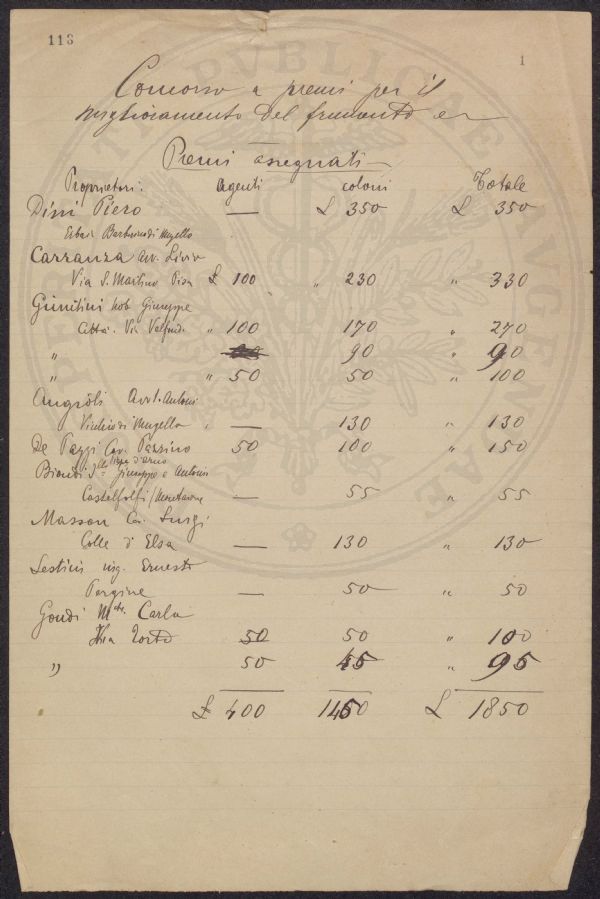 113
1
Concorso a premi per il
miglioramento del frumento
Premi assegnati
Proprietari: agenti coloni Totale
Dini Piero — £ 350 £ 350
Barberino di Mugello
Carranza avv. Livio
Via S. Martino Pisa £ 100 " 230 " 330
Giuntini nob. Giuseppe
Città. Via " 100 170 " 270
" 90 " 90
" " 50 50 " 100
Angioli Avv. Antonio
Vicchio di Mugello — 130 " 130
De Pazzi Cav. Pazzino 50 100 " 150
Biondi Giuseppe e Antonio
Castelfalfi / Montaione — 55 " 55
Masson Cav. Luigi
Colle d'Elsa — 130 " 130
Lestini ing. Ernesto
Pergine — 50 " 50
Gondi Mse. Carlo
50 50 " 100
" 50 45 " 95
£ 400 1450 £ 1850
PUBLICAE